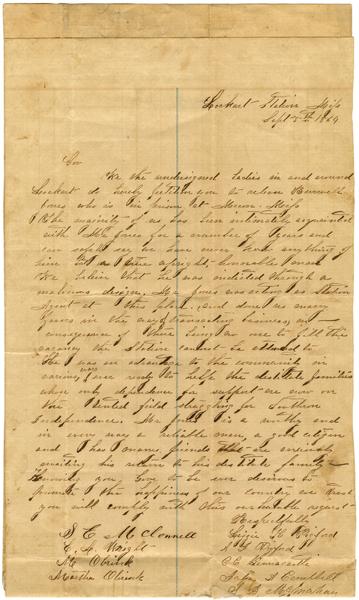 Lockhart Station Miss
Sept 5th 1864
Gov
We the undersigned Ladies in and around
Lockhart do hereby petition you to release Burwell
Jones who is in prison at Macon Miss
The majority of us has been intimately acquainted
with Mr Jones for a number of years and
can safely say we have never known anything of
him but a pure upright honorable man
We believe that he was indicted through a
malicious design. Mr Jones was acting as Station
Agent at this place and done us many
favors in the way of transacting business, in
consequence of there being no one to fill the
vacancy the Station cannot be attended to
He was an advantage to the community in
and was ever ready to help the destitute families
whose only dependence for support are now on
the tented field struggling for Southern
Independence. Mr Jones is a worthy and
in every way a reliable man, a good citizen
and has many friends that are anxiously
awaiting his return to his destitute family
Knowing you Gov to be ever desirous to
promote the happiness of our country we trust
you will comply with this our humble request
Respectfully
S E McConnell
E A Wright
M O
Martha O
Lizzie H
A G
C C
Julia A Campbell
S B McMahan